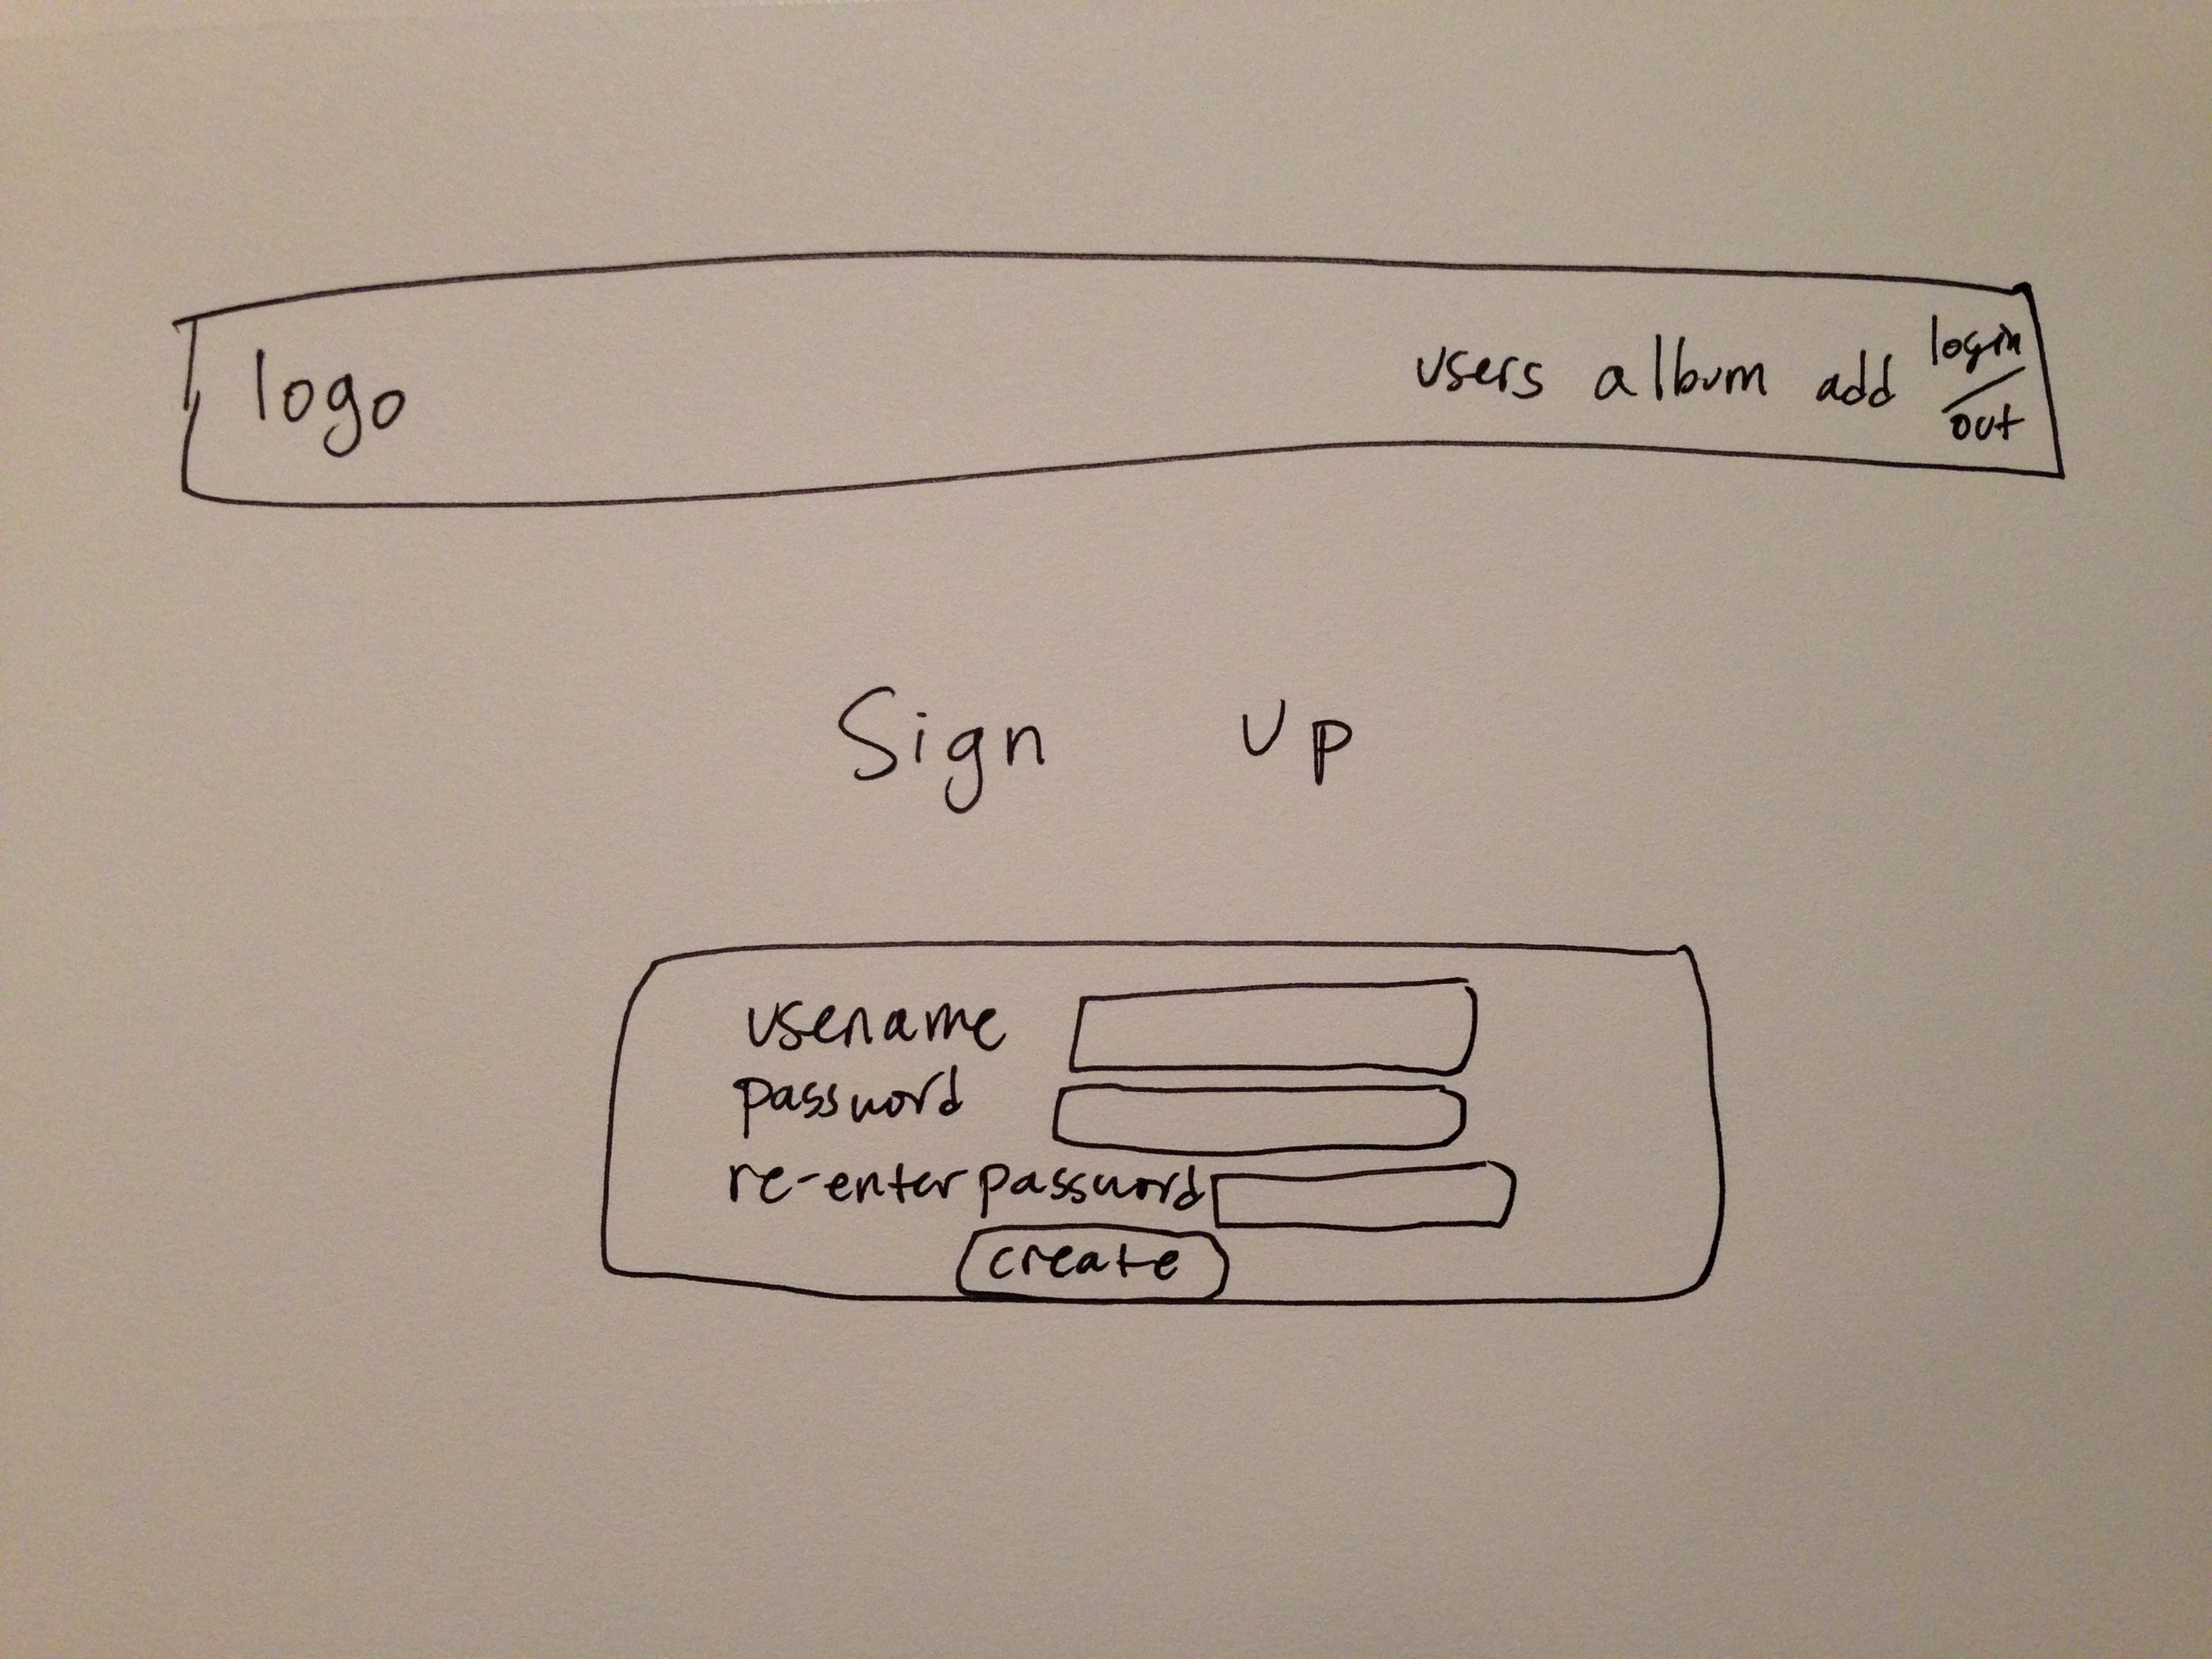 logo users album add login/out
Sign Up
usename
password
re-enter password
create